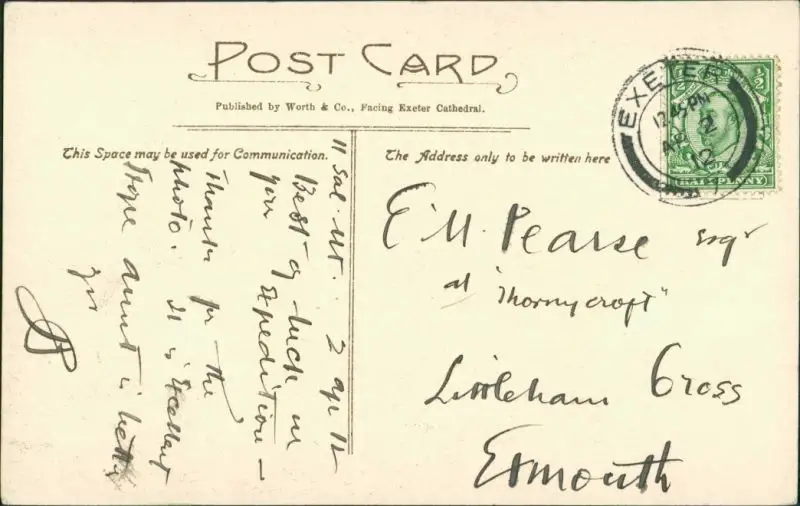 POST CARD
Published by Worth & Co., Facing Exeter Cathedral.
This Space may be used for Communication.
The Address only to be written here
EXETER
12.45 PM
AP 2
12
½ ½
HALFPENNY
11 Sal. Mt. 2 Ap 12
Best of luck in
yr Expedition —
Thanks for the
photo. It is Excellent
Hope aunt is better
Yrs
E M. Pearse Esqr
at "Thornycroft"
Littleham Cross
Exmouth